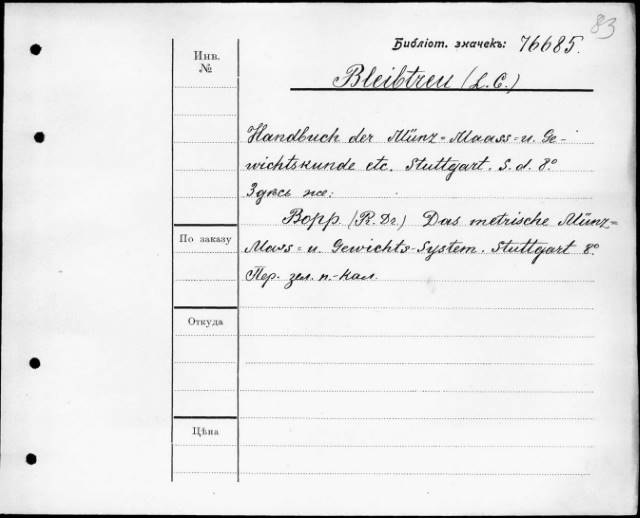 83
Библіот. значекъ: 76685.
Инв.
№
Bleibtreu (L. C.)
Handbuch der Münz= Maass= u. Ge-
wichtskunde etc. Stuttgart. S. d. 8º
Здѣсь же:
Bopp. (R. Dr.) Das metrische Münz=
По заказу
Mass= u. Gewichts-System. Stuttgart 8º
Пер. зел. п.-кал.
Откуда
Цѣна